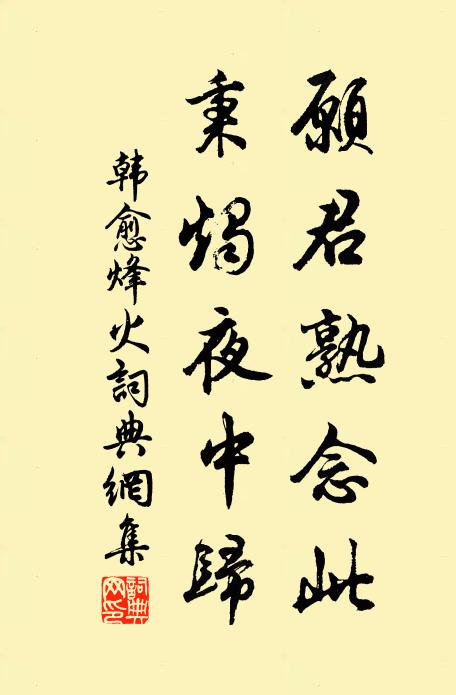 願君熟念此
秉燭夜中歸
韓愈烽火詞典網集
詞典
网印